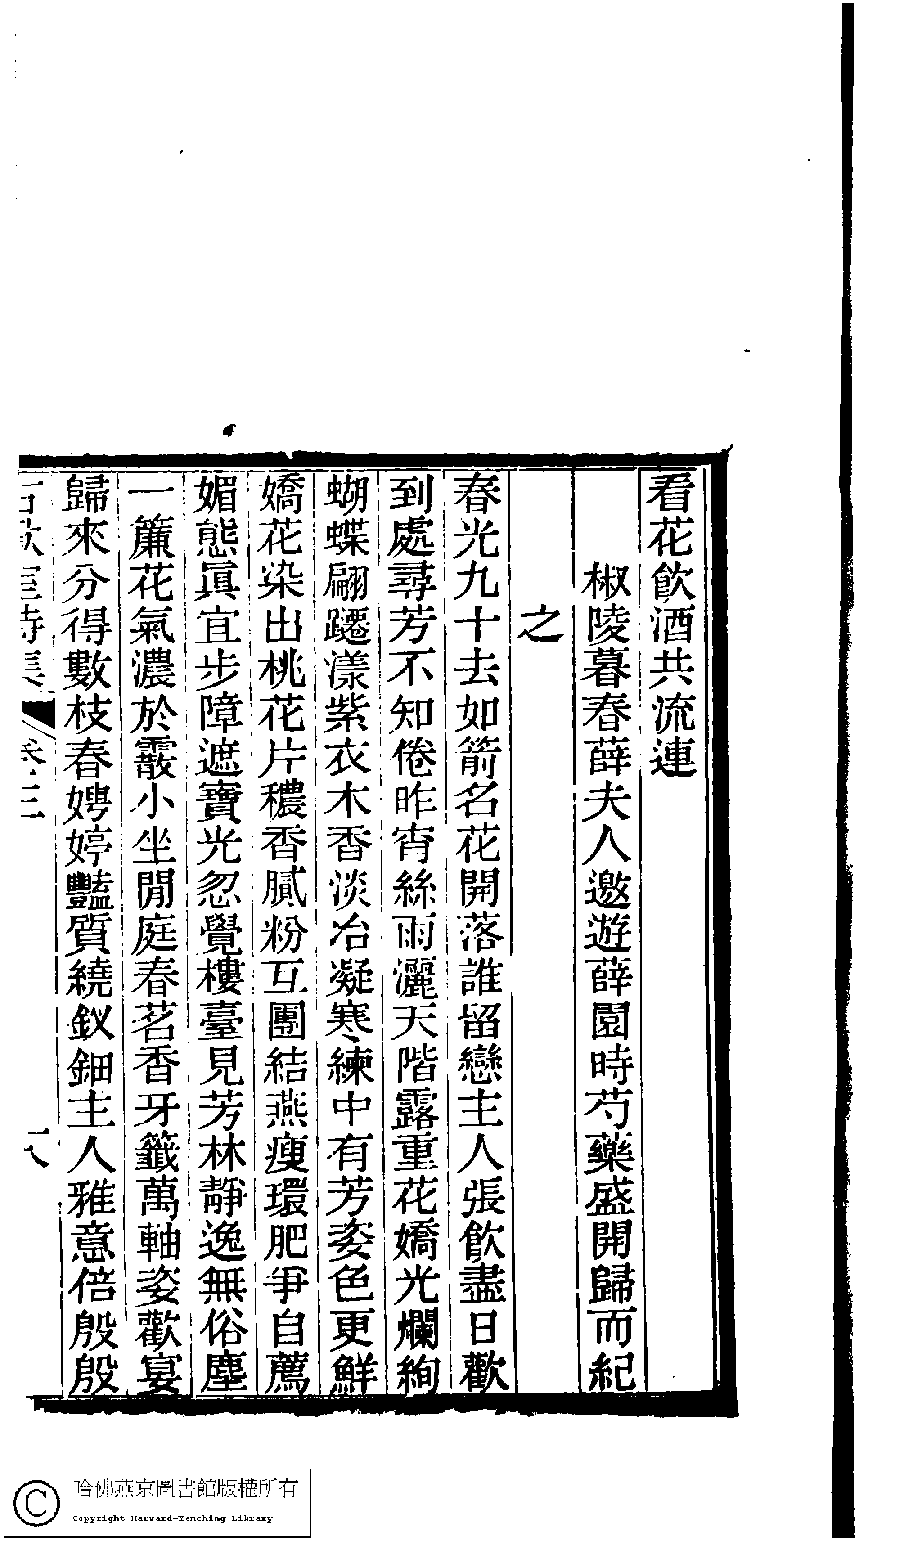 看花飲酒共流連
椒陵暮春薛夫人邀遊薛園時芍藥盛開歸而紀
之
春光九十去如箭名花開落誰留戀主人張飮盡日歡
到處尋芳不知倦昨宵絲雨灑天階露重花嬌光爛絢
蝴蝶翩躚漾紫衣木香淡冶凝寒練中有芳姿色更鮮
嬌花染出桃花片穠香膩粉互團結燕瘦環肥爭自薦
媚態眞宜步障遮寶光忽覺樓臺見芳林靜逸無俗塵
一簾花氣濃於霰小坐閒庭春茗香牙籤萬軸姿歡宴
歸來分得數枝春娉婷豔質繞釵鈿主人雅意倍殷殷
石 室詩集 卷三 十八
哈佛燕京圖書館版權所有
Copyright Harvard-Yenching Library